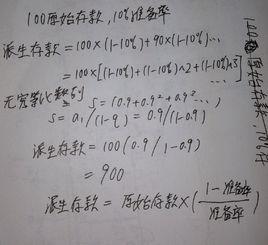 100原始存款,10%准备率
派生存款=100×(1-10%)+90×(1-10%)...
=100×[(1-10%)+(1-10%)^2+(1-10%)^3]
无穷等比数列 S=(0.9+0.9²+0.9³...)
S=a₁/(1-q)=0.9/(1-0.9)
派生存款=100(0.9/1-0.9)
=900
派生存款=原始存款×(1-准备率/准备率)
原始存款